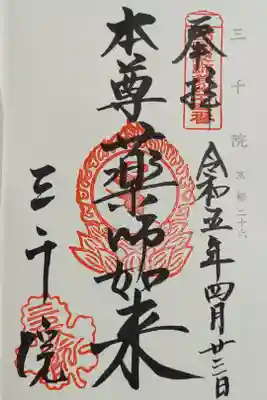 三千院 京都二十六
奉拝
令和五年四月廿三日
本尊薬師如来
三千院